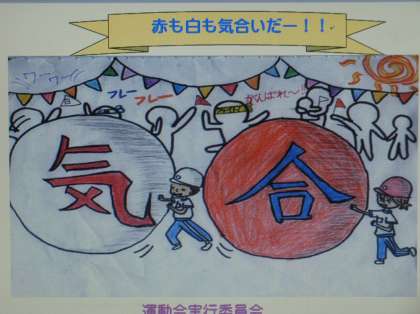 赤も白も気合いだー！！
ワーワーイ
フレー
フレー
がんばれ〜!!
気
合
運動会実行委員会